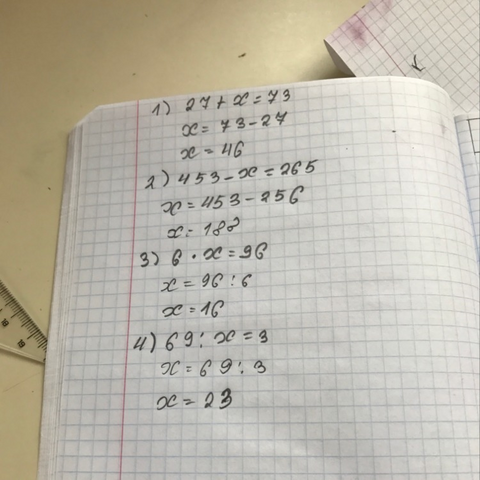 1) 27 + x = 73
x = 73 - 27
x = 46
2) 453 - x = 265
x = 453 - 256
x = 188
3) 6 · x = 96
x = 96 : 6
x = 16
4) 69 : x = 3
x = 69 : 3
x = 23